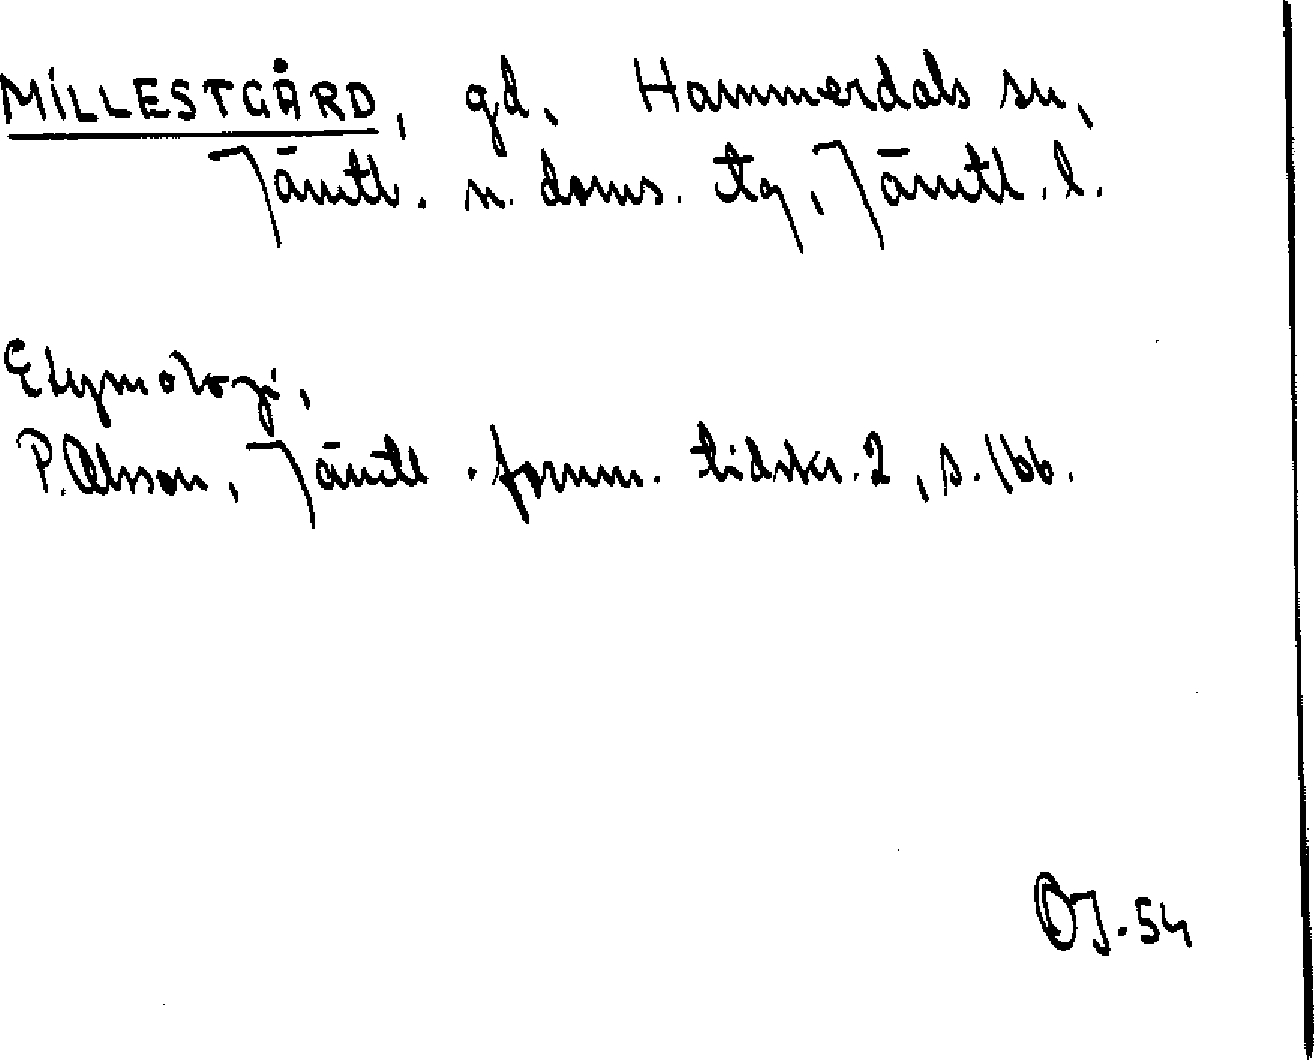 MILLESTGÅRD, gd, Hammerdals sn,
Jämtl. n. doms. tg, Jämtl. l.
Etymologi,
P. Olsson, Jämtl. fornm. tidskr. 2, s. 166.
OJ-54